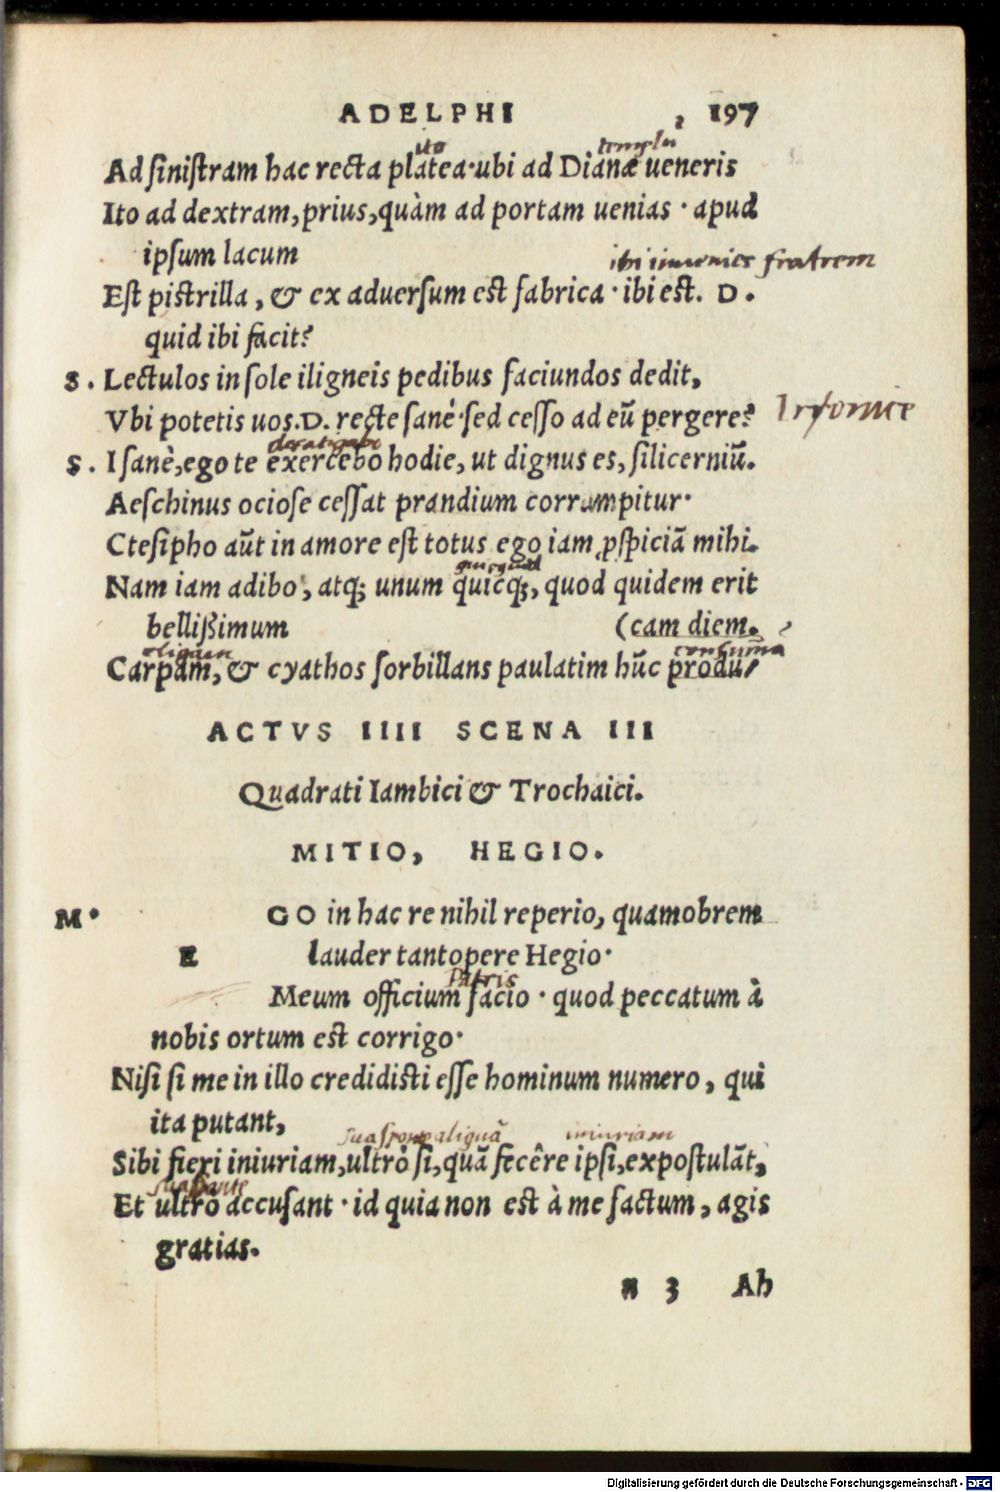 ADELPHI 197
ito templũ
Ad sinistram hac recta platea·ubi ad Dianæ ueneris
Ito ad dextram, prius, quàm ad portam uenias · apud
ipsum lacum
ibi inuenies fratrem
Est pistrilla, & ex aduersum est fabrica · ibi est. D.
quid ibi facit?
S. Lectulos in sole iligneis pedibus faciundos dedit,
Vbi potetis uos. D. recte sanè·sed cesso ad eũ pergere?
defatigabo
S. I sanè, ego te exercebo hodie, ut dignus es, silicerniũ.
Aeschinus ociose cessat prandium corrumpitur·
Ctesipho aũt in amore est totus ego iam ꝑspiciã mihi.
quicquid
Nam iam adibo, atq; unum quicq;, quod quidem erit
bellißimum (cam diem.
consumã
Carpam, & cyathos sorbillans paulatim hũc produ/
ACTVS IIII SCENA III
Quadrati Iambici & Trochaici.
MITIO, HEGIO.
M· EGO in hac re nihil reperio, quamobrem
lauder tantopere Hegio·
patris
Meum officium facio · quod peccatum à
nobis ortum est corrigo·
Nisi si me in illo credidisti esse hominum numero, qui
ita putant,
sua sponte aliquã iniuriam
Sibi fieri iniuriam, ultrò si, quã fecêre ipsi, expostulãt,
sua sponte
Et ultrò accusant · id quia non est à me factum, agis
gratias.
n 3 Ah
Digitalisierung gefördert durch die Deutsche Forschungsgemeinschaft - DFG